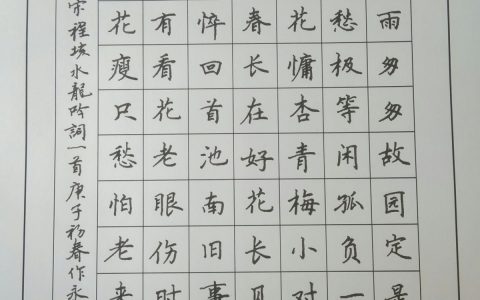 雨匆匆故园定是
愁极等闲孤负一
花慵杏青梅小对
春长在好花长见
悴回首池南旧事
有看花老眼伤时
花瘦只愁怕老来
宋程垓水龍吟詞一首庚子初春作永